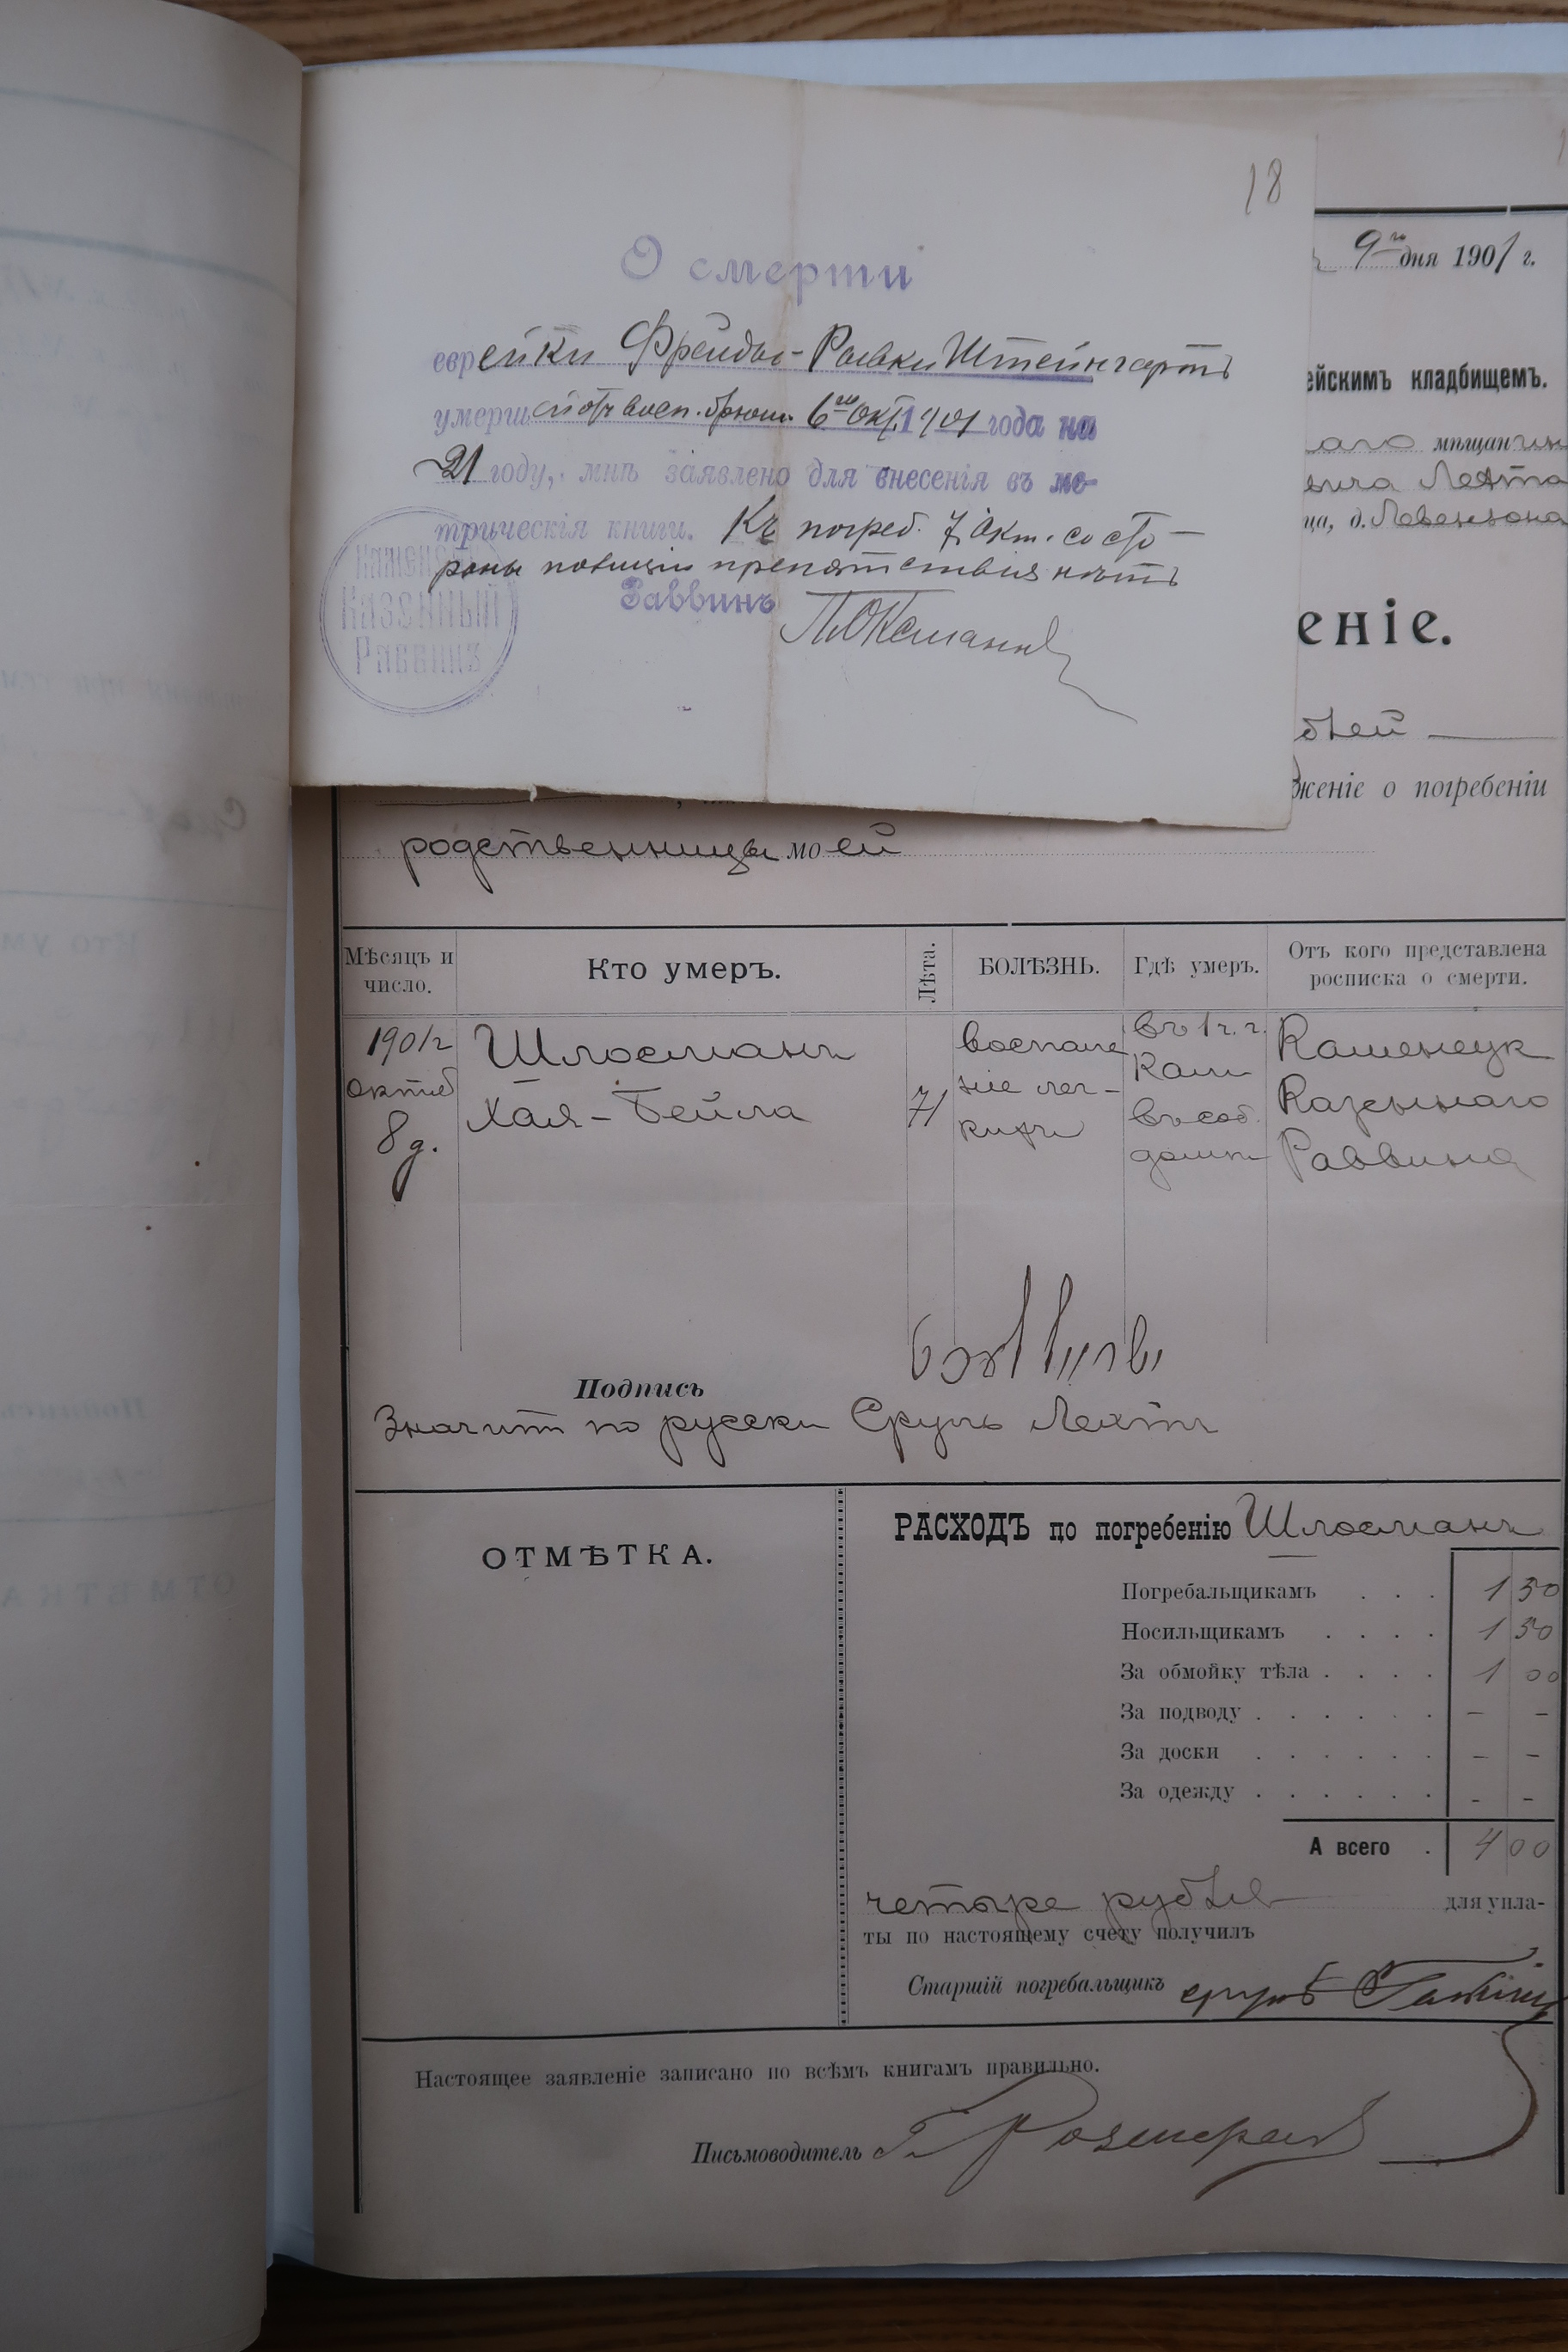 18
О смерти
еврейки Фрейды-Ривки Штейнгартъ
умершей отъ восп. брюш. 6го Окт. 1901 года на
21 году, мнѣ заявлено для внесенія въ ме-
трическія книги. Къ погреб. 7 Окт. со сто-
роны полиціи препятствія нѣтъ
Раввинъ
Каменецкій
Казенный
Раввинъ
9го дня 1901 г.
ейскимъ кладбищемъ.
аго мѣщанин
вича Лехта
ца, д. Левензона
еніе.
бѣей
женіе о погребеніи
родственницы моей
Мѣсяцъ и число.
Кто умеръ.
Лѣта.
БОЛѢЗНЬ.
Гдѣ умеръ.
Отъ кого представлена росписка о смерти.
1901 г
октяб
8 д.
Шлосманъ
Хая-Бейла
71
воспале
ніе лег-
кихъ
въ 1 ч. г.
Кам
въ соб.
домѣ
Каменецк
Казеннаго
Раввина
Подпись
Значитъ по русски Сруль Лехтъ
ОТМѢТКА.
РАСХОДЪ по погребенію Шлосманъ
Погребальщикамъ . . . 1 50
Носильщикамъ . . . . 1 50
За обмойку тѣла . . . . 1 00
За подводу . . . . . . – –
За доски . . . . . . – –
За одежду . . . . . . - -
А всего . 4 00
четыре рубля для упла-
ты по настоящему счету получилъ
Старшій погребальщикъ
Настоящее заявленіе записано по всѣмъ книгамъ правильно.
Письмоводитель